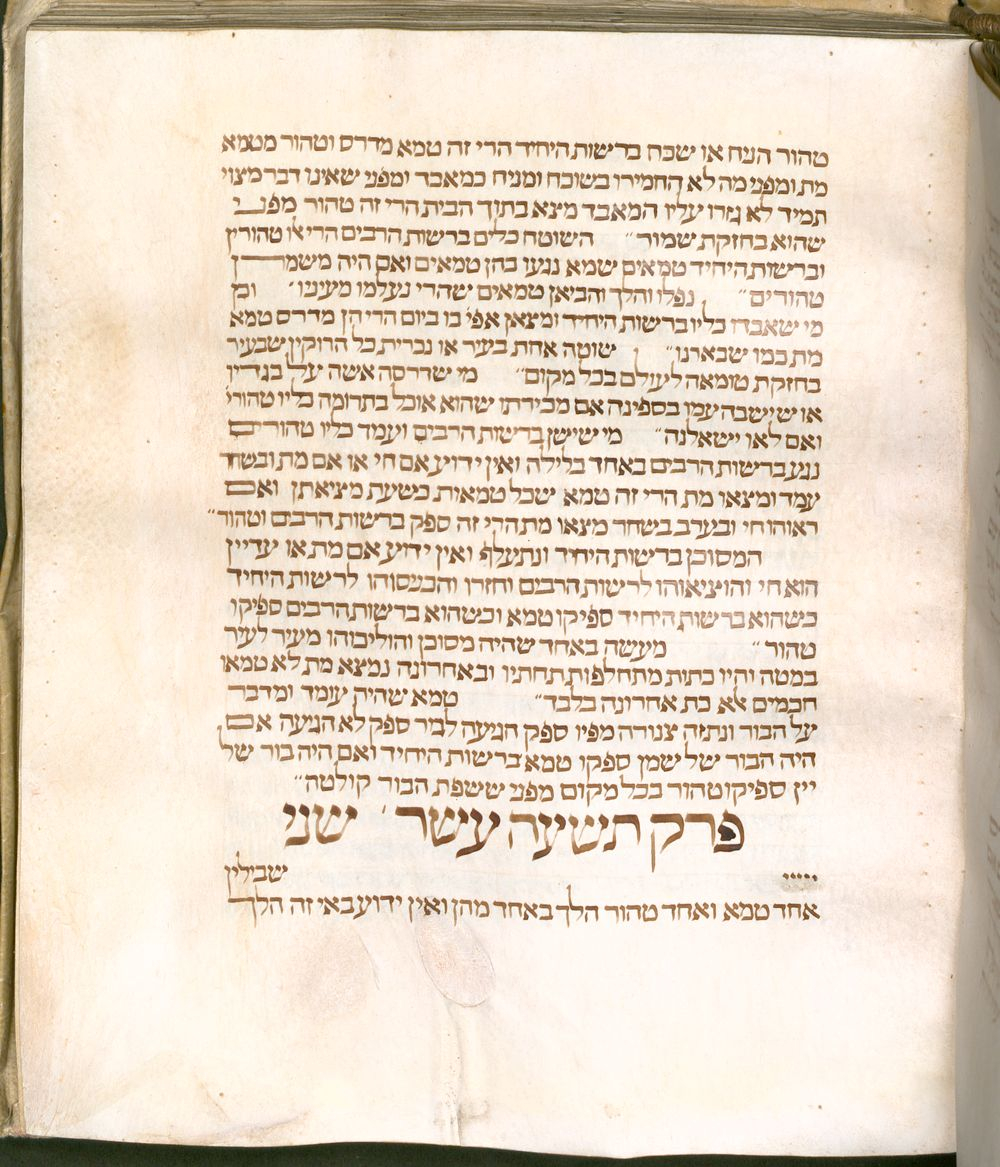 טהור הניח או שכח ברשות היחיד הרי זה טמא מדרס וטהור מטמא
מת ומפני מה לא החמירו בשוכח ומניח כמאבד ומפני שאינו דבר מצוי
תמיד לא גזרו עליו המאבד מצא בתוך הבית הרי זה טהור מפני
שהוא בחזקת שמור ״ השוטח כלים ברשות הרבים הרי אלו טהורין
וברשות היחיד טמאים שמא נגעו בהן טמאים ואם היה משמרן
טהורים ״ נפלו והלך והביאן טמאים שהרי נעלמו מעיניו ׳ וכן
מי שאבדו כליו ברשות היחיד ומצאן אפי׳ בו ביום הרי הן מדרס טמא
מת כמו שבארנו ״ שוטה אחת בעיר או נכרית כל הרוקין שבעיר
בחזקת טומאה לעולם בכל מקום ״ מי שדרסה אשה על בגדיו
או שישבה עמו בספינה אם מכירתו שהוא אוכל בתרומה כליו טהורי׳
ואם לאו ישאלנה ״ מי שישן ברשות הרבים ועמד כליו טהורים
נגע ברשות הרבים באחד בלילה ואין ידוע אם חי או אם מת ובשחר
עמד ומצאו מת הרי זה טמא שכל טמאות כשעת מציאתן ואם
ראוהו חי ובערב בשחר מצאו מת הרי זה ספק ברשות הרבים וטהור ״
המסוכן ברשות היחיד ונתעלף ואין ידוע אם מת או עדיין
הוא חי והוציאוהו לרשות הרבים וחזרו והכניסוהו לרשות היחיד
כשהוא ברשות היחיד ספיקו טמא וכשהוא ברשות הרבים ספיקו
טהור ״ מעשה באחד שהיה מסוכן והוליכוהו מעיר לעיר
במטה והיו כתות מתחלפות תחתיו ובאחרונה נמצא מת לא טמאו
חכמים אלא כת אחרונה בלבד ״ טמא שהיה עומד ומדבר
על הבור ונתזה צנורה מפיו ספק הגיעה לבור ספק לא הגיעה אם
היה הבור של שמן ספקו טמא ברשות היחיד ואם היה בור של
יין ספיקו טהור בכל מקום מפני ששפת הבור קולטה ״
פרק תשעה עשר ׳ שני
שבילין
אחד טמא ואחד טהור הלך באחד מהן ואין ידוע באי זה הלך